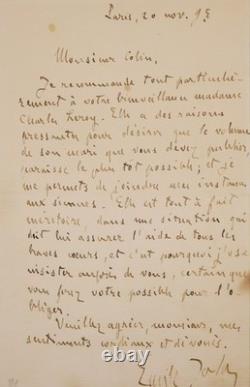 Paris, 20 nov. 95
Monsieur Colin,
Je recommande tout particuliè-
rement à votre bienveillance madame
Charles Leroy. Elle a des raisons
pressantes pour désirer que le volume
de son mari que vous devez publier,
paraisse le plus tôt possible; et je
me permets de joindre mes instances
aux siennes. Elle est tout à fait
méritoire, dans une situation qui
doit lui assurer l'aide de tous les
braves cœurs, et c'est pourquoi j'ose
insister auprès de vous, certain que
vous ferez votre possible pour l'o-
bliger.
Veuillez agréer, monsieur, mes
sentiments cordiaux et dévoués.
Emile Zola